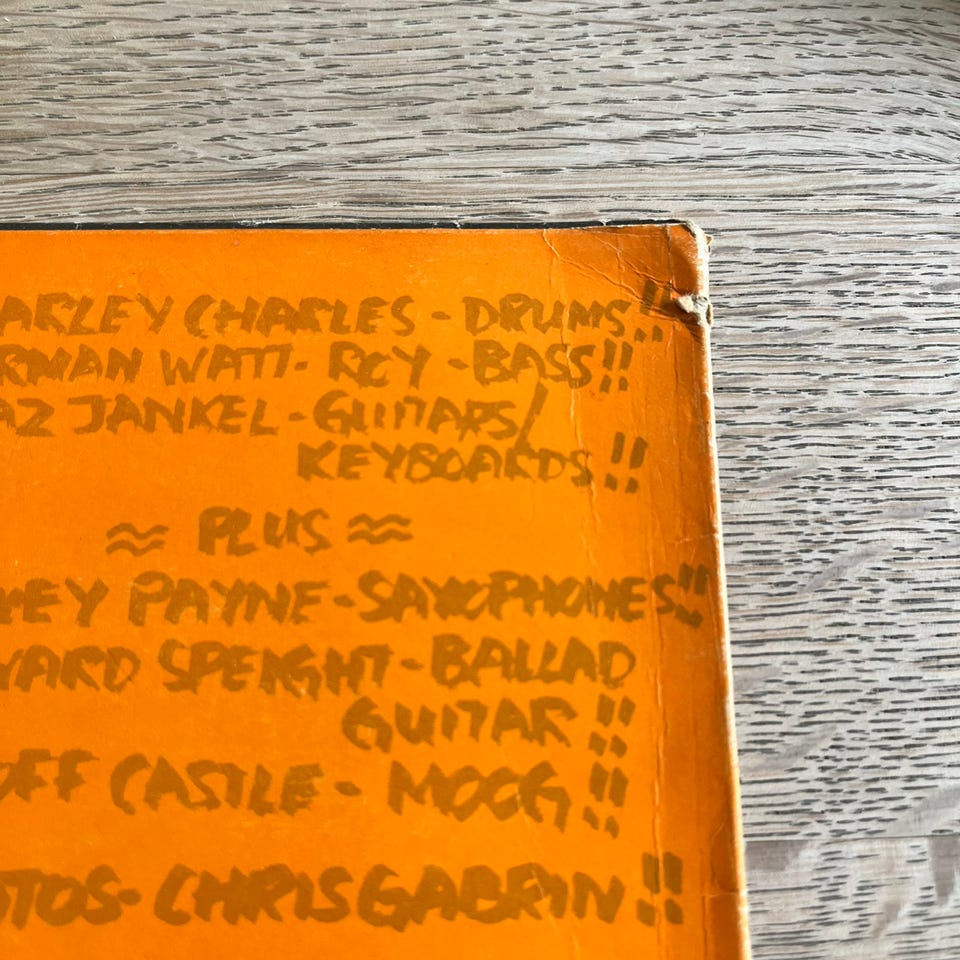 ARLEY CHARLES - DRUMS!!
RMAN WATT - ROY - BASS!!
AZ JANKEL - GUITARS/
KEYBOARDS!!
≈ PLUS ≈
EY PAYNE - SAXOPHONES!!
WARD SPEIGHT - BALLAD
GUITAR!!
OFF CASTLE - MOOG!!
TOS - CHRIS GABRIN!!